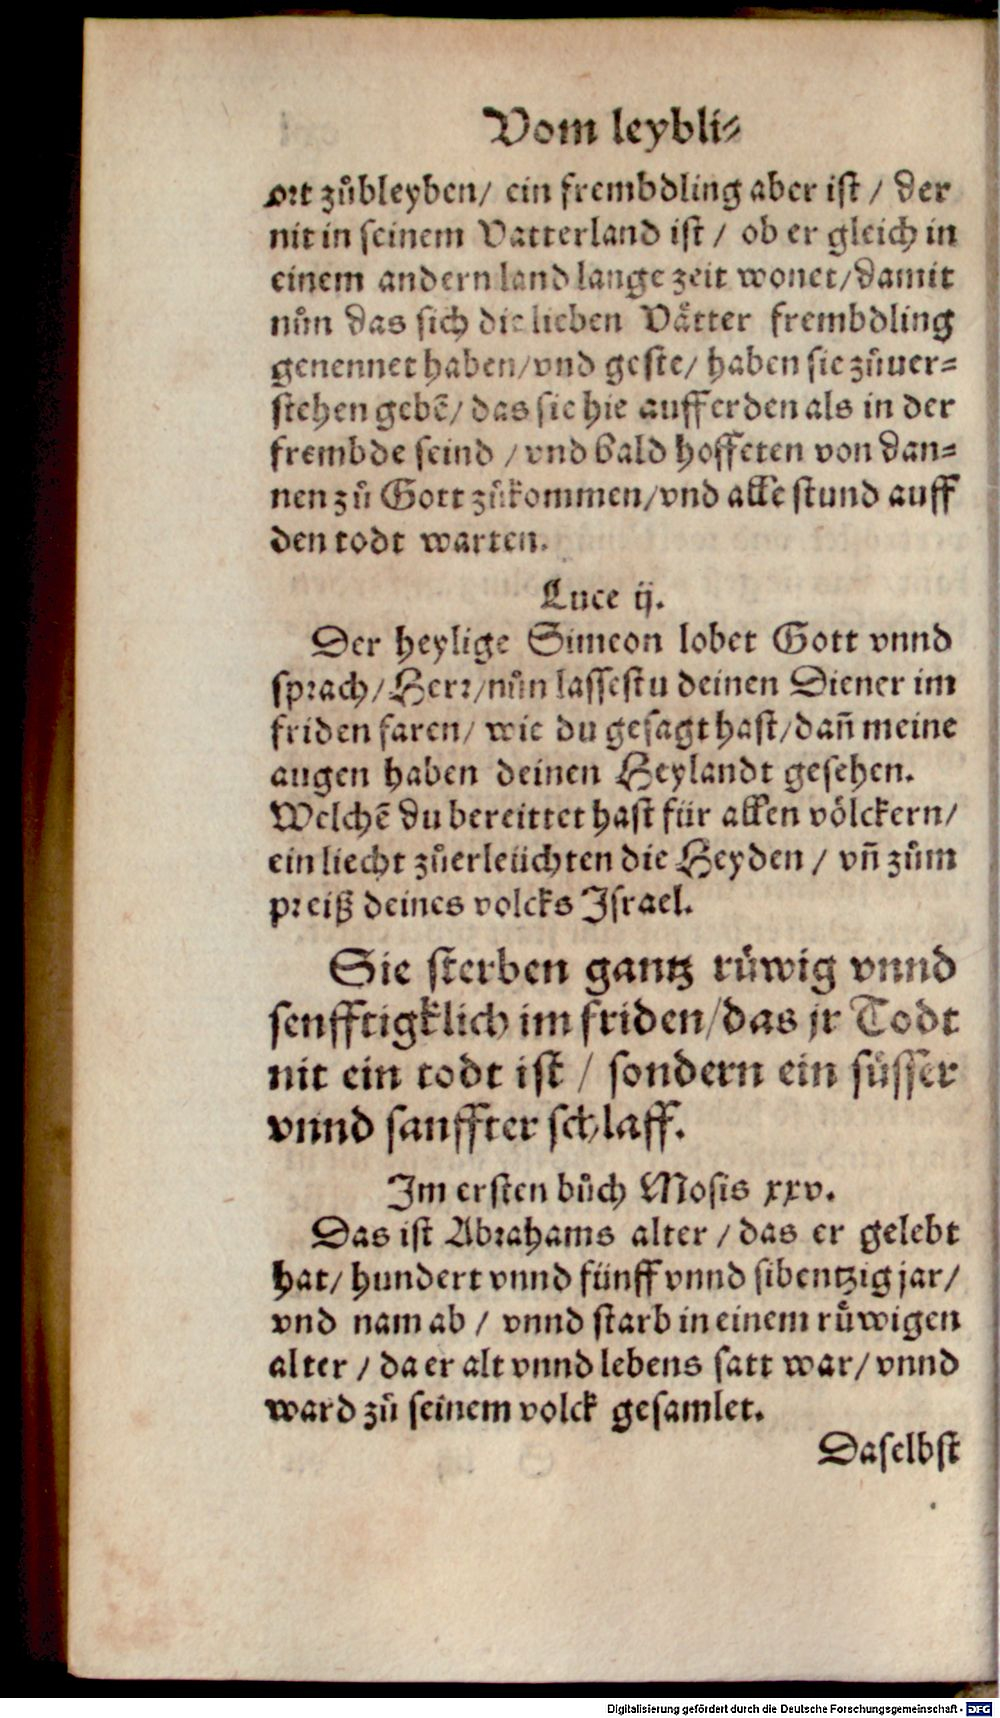 Vom leybli⸗
ort zůbleyben/ ein frembdling aber ist / der
nit in seinem Vatterland ist / ob er gleich in
einem andern land lange zeit wonet/damit
nůn das sich die lieben Vätter frembdling
genennet haben/vnd geste/ haben sie zůuer⸗
stehen gebē/ das sie hie auff erden als in der
frembde seind / vnd bald hoffeten von dan⸗
nen zů Gott zůkommen/vnd alle stund auff
den todt warten.
Luce ij.
Der heylige Simeon lobet Gott vnnd
sprach/Herr/nůn lassestu deinen Diener im
friden faren/ wie du gesagt hast/dañ meine
augen haben deinen Heylandt gesehen.
Welchē du bereittet hast für allen völckern/
ein liecht zůerleüchten die Heyden / vñ zům
preiß deines volcks Israel.
Sie sterben gantz růwig vnnd
senfftigklich im friden/das jr Todt
nit ein todt ist / sondern ein süsser
vnnd sanffter schlaff.
Im ersten bůch Mosis xxv.
Das ist Abrahams alter / das er gelebt
hat/ hundert vnnd fünff vnnd sibentzig jar/
vnd nam ab / vnnd starb in einem růwigen
alter / da er alt vnnd lebens satt war/ vnnd
ward zů seinem volck gesamlet.
Daselbst
Digitalisierung gefördert durch die Deutsche Forschungsgemeinschaft - DFG